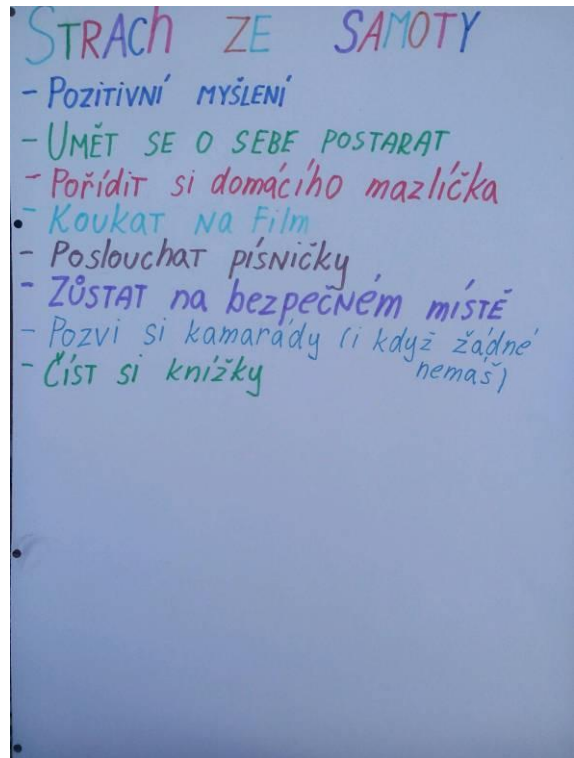 STRACH ZE SAMOTY
- POZITIVNÍ MYŠLENÍ
- UMĚT SE O SEBE POSTARAT
- Pořídit si domácího mazlíčka
- Koukat na Film
- Poslouchat písničky
- Zůstat na bezpečném místě
- Pozvi si kamarády (i když žádné
nemáš)
- Číst si knížky